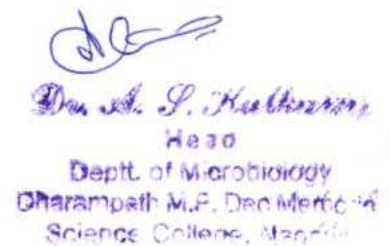 Dr. A. S.
Head
Deptt. of Microbiology
Dharampeth M.P. Deo Memorial
Science College, Nagpur